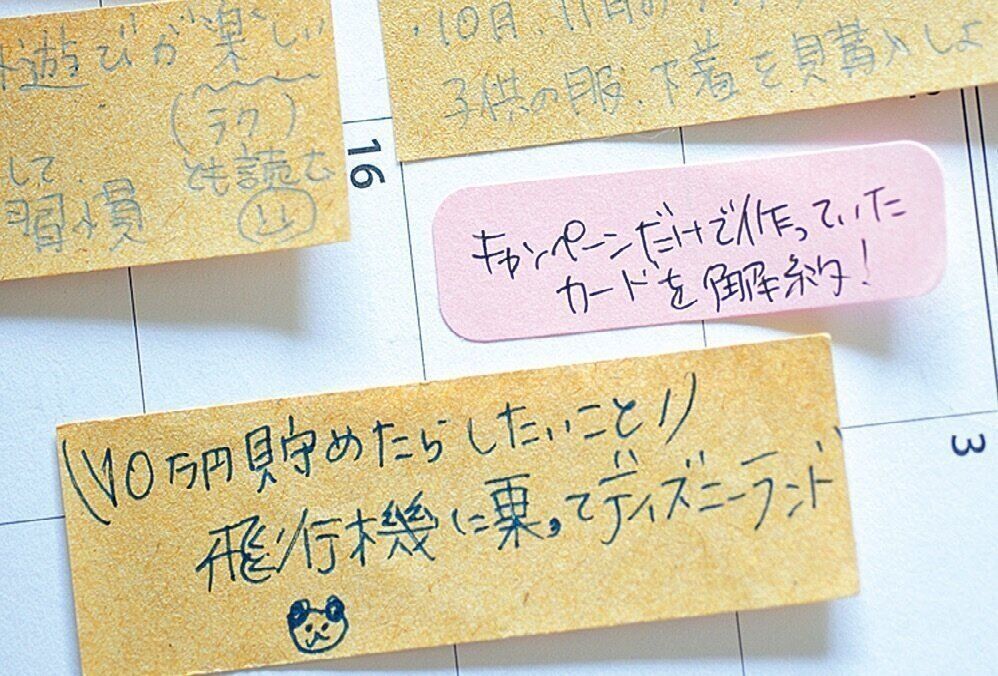 遊びが楽しい
(ラク)
して、 とも読む
習慣
・10日、11日の
子供の服、下着を購入しよ
16
キャンペーンだけで作っていた
カードを解約!
\\10万円貯めたらしたいこと//
飛行機に乗ってディズニーランド
3